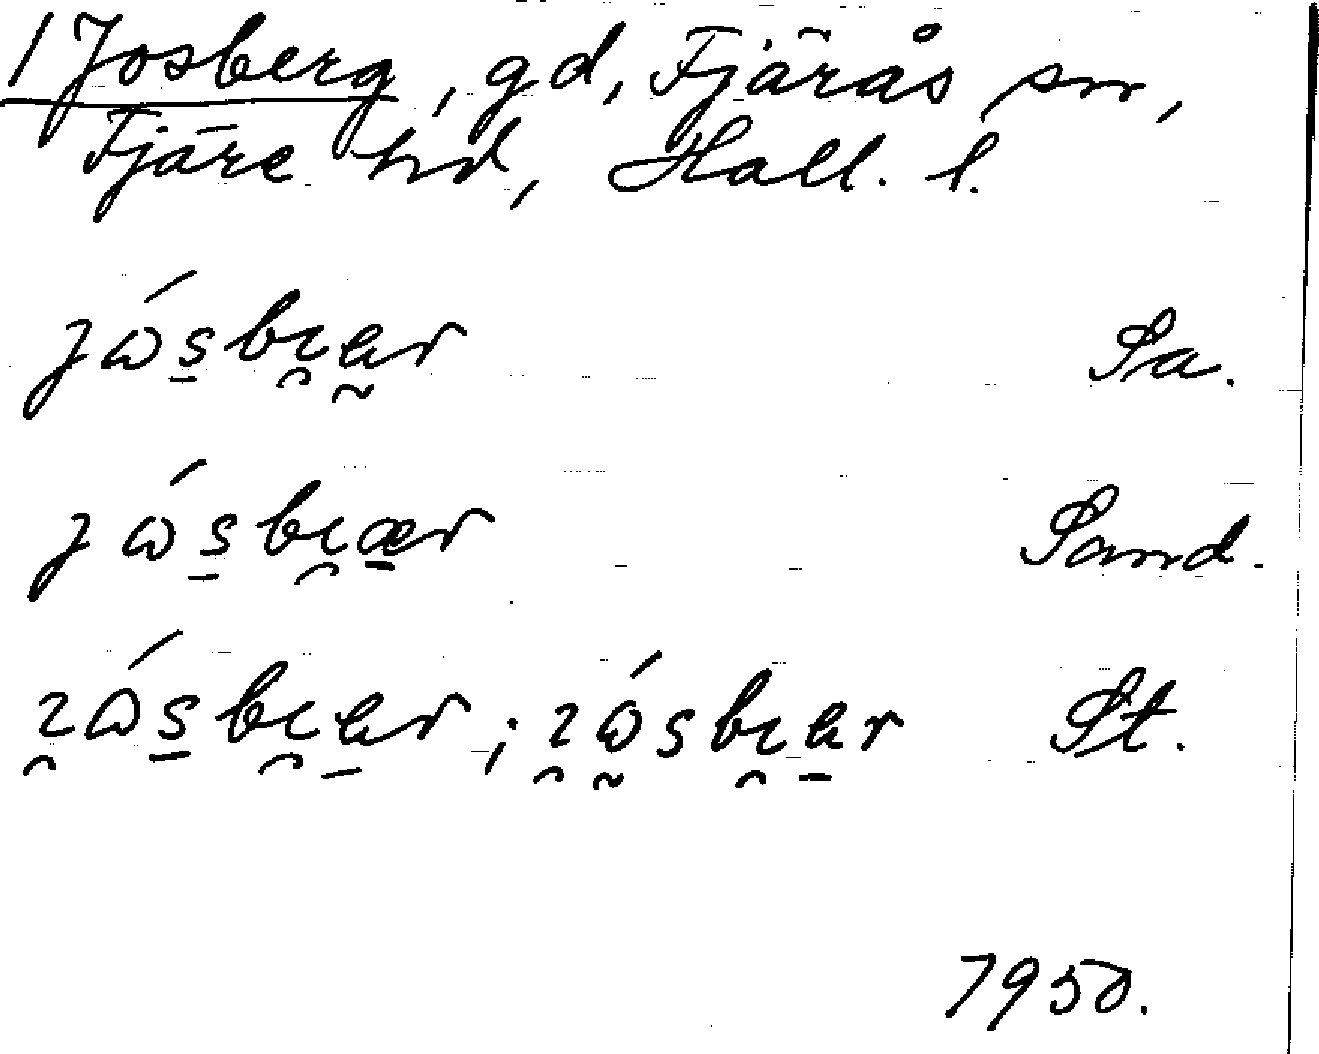 1 Josberg, gd, Fjärås sn,
Fjäre hd, Hall. l.
jώs̲bı̯a̰r Sa.
jώs̲bı̯æ̲r Sand.
ı̯ώs̲bı̯a̲r ; ı̯ώ̰sbı̯a̲r St.
1950.